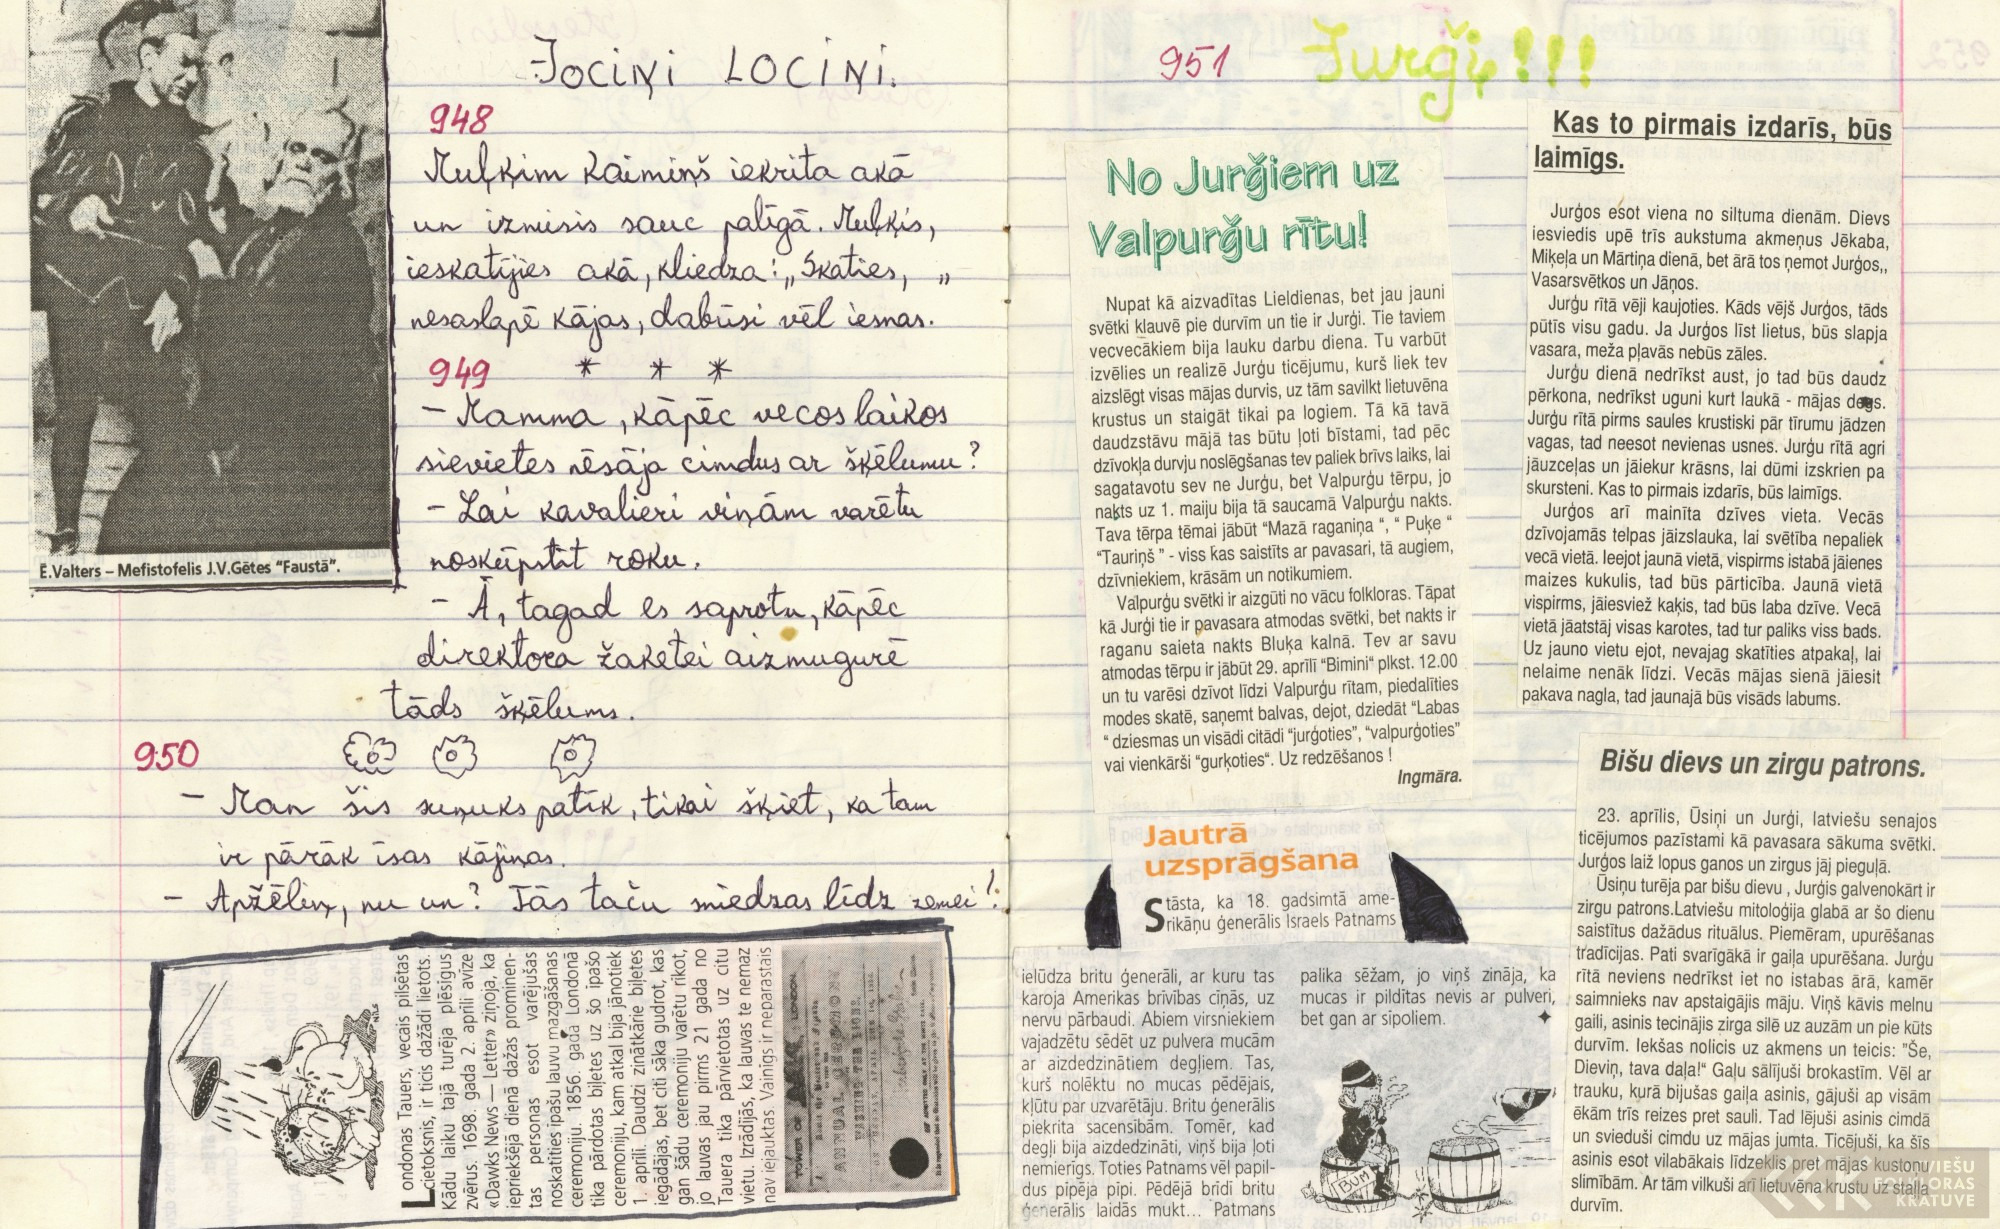 E.Valters – Mefistofelis J.V.Gētes "Faustā".
JOCIŅI LOCIŅI.
948
Muļķim kaimiņš iekrita akā
un izmisis sauc palīgā. Muļķis,
ieskatījies akā, kliedza: „Skaties, „
nesaslapē kājas, dabūsi vēl iesnas.
949 * * *
– Mamma, kāpēc vecos laikos
sievietes nēsāja cimdus ar šķēlumu?
– Lai kavalieri viņām varētu
noskūpstīt roku.
– Ā, tagad es saprotu, kāpēc
direktora žaketei aizmugurē
tāds šķēlums.
950
– Man šis suņuks patīk, tikai šķiet, ka tam
ir pārāk īsas kājiņas.
– Apžēliņ, nu un? Tās taču sniedzas līdz zemei!
Londonas Tauers, vecais pilsētas
cietoksnis, ir ticis dažādi lietots.
Kādu laiku tajā turēja plēsīgus
zvērus. 1698. gada 2. aprīlī avīze
«Dawks News — Letter» ziņoja, ka
iepriekšējā dienā dažas prominen-
tas personas esot varējušas
noskatīties īpašu lauvu mazgāšanas
ceremoniju. 1856. gadā Londonā
tika pārdotas biļetes uz šo īpašo
ceremoniju, kam atkal bija jānotiek
1. aprīlī. Daudzi zinātkārie biļetes
iegādājas, bet citi sāka gudrot, kas
gan šādu ceremoniju varētu rīkot,
jo lauvas jau pirms 21 gada no
Tauera tika pārvietotas uz citu
vietu. Izrādījās, ka lauvas te nemaz
nav iejauktas. Vainīgs ir neparastais
NILS
TOWER OF LONDON
ANNUAL CEREMONY
WASHING THE LIONS
951 Jurģi!!!
No Jurģiem uz
Valpurģu rītu!
Nupat kā aizvadītas Lieldienas, bet jau jauni
svētki klauvē pie durvīm un tie ir Jurģi. Tie taviem
vecvecākiem bija lauku darbu diena. Tu varbūt
izvēlies un realizē Jurģu ticējumu, kurš liek tev
aizslēgt visas mājas durvis, uz tām savilkt lietuvēna
krustus un staigāt tikai pa logiem. Tā kā tavā
daudzstāvu mājā tas būtu ļoti bīstami, tad pēc
dzīvokļa durvju noslēgšanas tev paliek brīvs laiks, lai
sagatavotu sev ne Jurģu, bet Valpurģu tērpu, jo
nakts uz 1. maiju bija tā saucamā Valpurģu nakts.
Tava tērpa tēmai jābūt "Mazā raganiņa “, “ Puķe “
"Tauriņš ” - viss kas saistīts ar pavasari, tā augiem,
dzīvniekiem, krāsām un notikumiem.
Valpurģu svētki ir aizgūti no vācu folkloras. Tāpat
kā Jurģi tie ir pavasara atmodas svētki, bet nakts ir
raganu saieta nakts Bluķa kalnā. Tev ar savu
atmodas tērpu ir jābūt 29. aprīlī “Bimini” plkst. 12.00
un tu varēsi dzīvot līdzi Valpurģu rītam, piedalīties
modes skatē, saņemt balvas, dejot, dziedāt “Labas
“ dziesmas un visādi citādi “jurģoties”, “valpurģoties”
vai vienkārši “gurķoties“. Uz redzēšanos !
Ingmāra.
Jautrā
uzsprāgšana
Stāsta, ka 18. gadsimtā ame-
rikāņu ģenerālis Israels Patnams
ielūdza britu ģenerāli, ar kuru tas
karoja Amerikas brīvības cīņās, uz
nervu pārbaudi. Abiem virsniekiem
vajadzētu sēdēt uz pulvera mucām
ar aizdedzinātiem degļiem. Tas,
kurš nolēktu no mucas pēdējais,
kļūtu par uzvarētāju. Britu ģenerālis
piekrita sacensībām. Tomēr, kad
degļi bija aizdedzināti, viņš bija ļoti
nemierīgs. Toties Patnams vēl papil-
dus pīpēja pīpi. Pēdējā brīdī britu
ģenerālis laidās mukt... Patmans
palika sēžam, jo viņš zināja, ka
mucas ir pildītas nevis ar pulveri,
bet gan ar sīpoliem.
BUM
Kas to pirmais izdarīs, būs
laimīgs.
Jurģos esot viena no siltuma dienām. Dievs
iesviedis upē trīs aukstuma akmeņus Jēkaba,
Miķeļa un Mārtiņa dienā, bet ārā tos ņemot Jurģos,,
Vasarsvētkos un Jāņos.
Jurģu rītā vēji kaujoties. Kāds vējš Jurģos, tāds
pūtīs visu gadu. Ja Jurģos līst lietus, būs slapja
vasara, meža pļavās nebūs zāles.
Jurģu dienā nedrīkst aust, jo tad būs daudz
pērkona, nedrīkst uguni kurt laukā - mājas degs.
Jurģu rītā pirms saules krustiski pār tīrumu jādzen
vagas, tad neesot nevienas usnes. Jurģu rītā agri
jāuzceļas un jāiekur krāsns, lai dūmi izskrien pa
skursteni. Kas to pirmais izdarīs, būs laimīgs.
Jurģos arī mainīta dzīves vieta. Vecās
dzīvojamās telpas jāizslauka, lai svētība nepaliek
vecā vietā. Ieejot jaunā vietā, vispirms istabā jāienes
maizes kukulis, tad būs pārticība. Jaunā vietā
vispirms, jāiesviež kaķis, tad būs laba dzīve. Vecā
vietā jāatstāj visas karotes, tad tur paliks viss bads.
Uz jauno vietu ejot, nevajag skatīties atpakaļ, lai
nelaime nenāk līdzi. Vecās mājas sienā jāiesit
pakava nagla, tad jaunajā būs visāds labums.
Bišu dievs un zirgu patrons.
23. aprīlis, Ūsiņi un Jurģi, latviešu senajos
ticējumos pazīstami kā pavasara sākuma svētki.
Jurģos laiž lopus ganos un zirgus jāj pieguļā.
Ūsiņu turēja par bišu dievu , Jurģis galvenokārt ir
zirgu patrons.Latviešu mitoloģija glabā ar šo dienu
saistītus dažādus rituālus. Piemēram, upurēšanas
tradīcijas. Pati svarīgākā ir gaiļa upurēšana. Jurģu
rītā neviens nedrīkst iet no istabas ārā, kamēr
saimnieks nav apstaigājis māju. Viņš kāvis melnu
gaili, asinis tecinājis zirga silē uz auzām un pie kūts
durvīm. Iekšas nolicis uz akmens un teicis: "Še,
Dieviņ, tava daļa!" Gaļu sālījuši brokastīm. Vēl ar
trauku, kurā bijušas gaiļa asinis, gājuši ap visām
ēkām trīs reizes pret sauli. Tad lējuši asinis cimdā
un svieduši cimdu uz mājas jumta. Ticējuši, ka šīs
asinis esot vilabākais līdzeklis pret mājas kustoņu
slimībām. Ar tām vilkuši arī lietuvēna krustu uz staļļa
durvīm.
LATVIEŠU
FOLKLORAS
KRĀTUVE